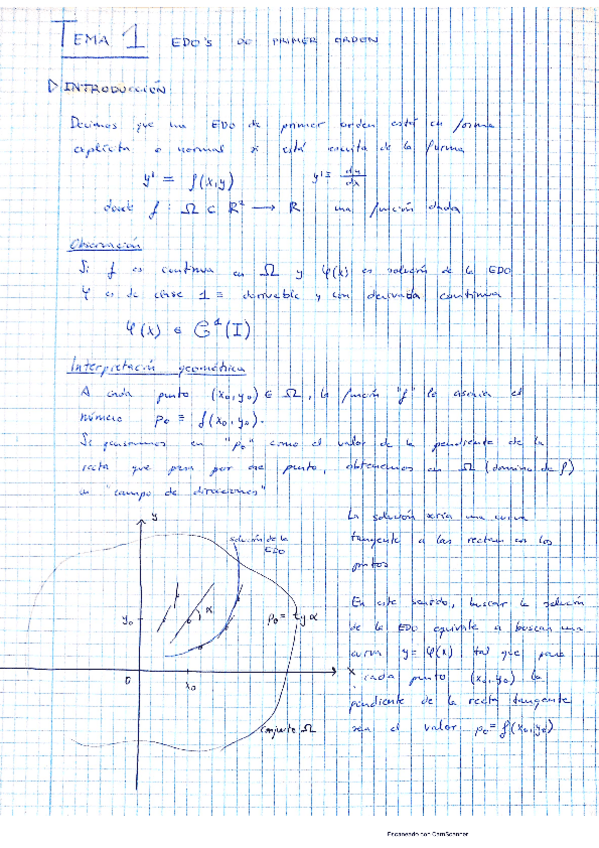 TEMA 1 EDO'S DE PRIMER ORDEN
▷ INTRODUCCIÓN
Decimos que una EDO de primer orden está en forma
explícita o normal si está escrita de la forma
y' = f(x,y) y' ≡ dy/dx
donde f : Ω ⊂ R² → R una función dada
Observación
Si f es continua en Ω y φ(x) es solución de la EDO
φ es de clase 1 ≡ derivable y con derivada continua
φ(x) ∈ C¹(I)
Interpretación geométrica
A cada punto (x₀,y₀) ∈ Ω, la función "f" le asocia el
número p₀ ≡ f(x₀,y₀).
Si pensamos en "p₀" como el valor de la pendiente de la
recta que pasa por ese punto, obtenemos en Ω (dominio de f)
un "campo de direcciones"
y
solución de la
EDO
α
y₀
p₀ = tg α
0
x₀
x
conjunto Ω
La solución sería una curva
tangente a las rectas en los
puntos
En este sentido, buscar la solución
de la EDO equivale a buscar una
curva y = φ(x) tal que para
cada punto (x₀,y₀) la
pendiente de la recta tangente
sea el valor p₀ = f(x₀,y₀)
Escaneado con CamScanner